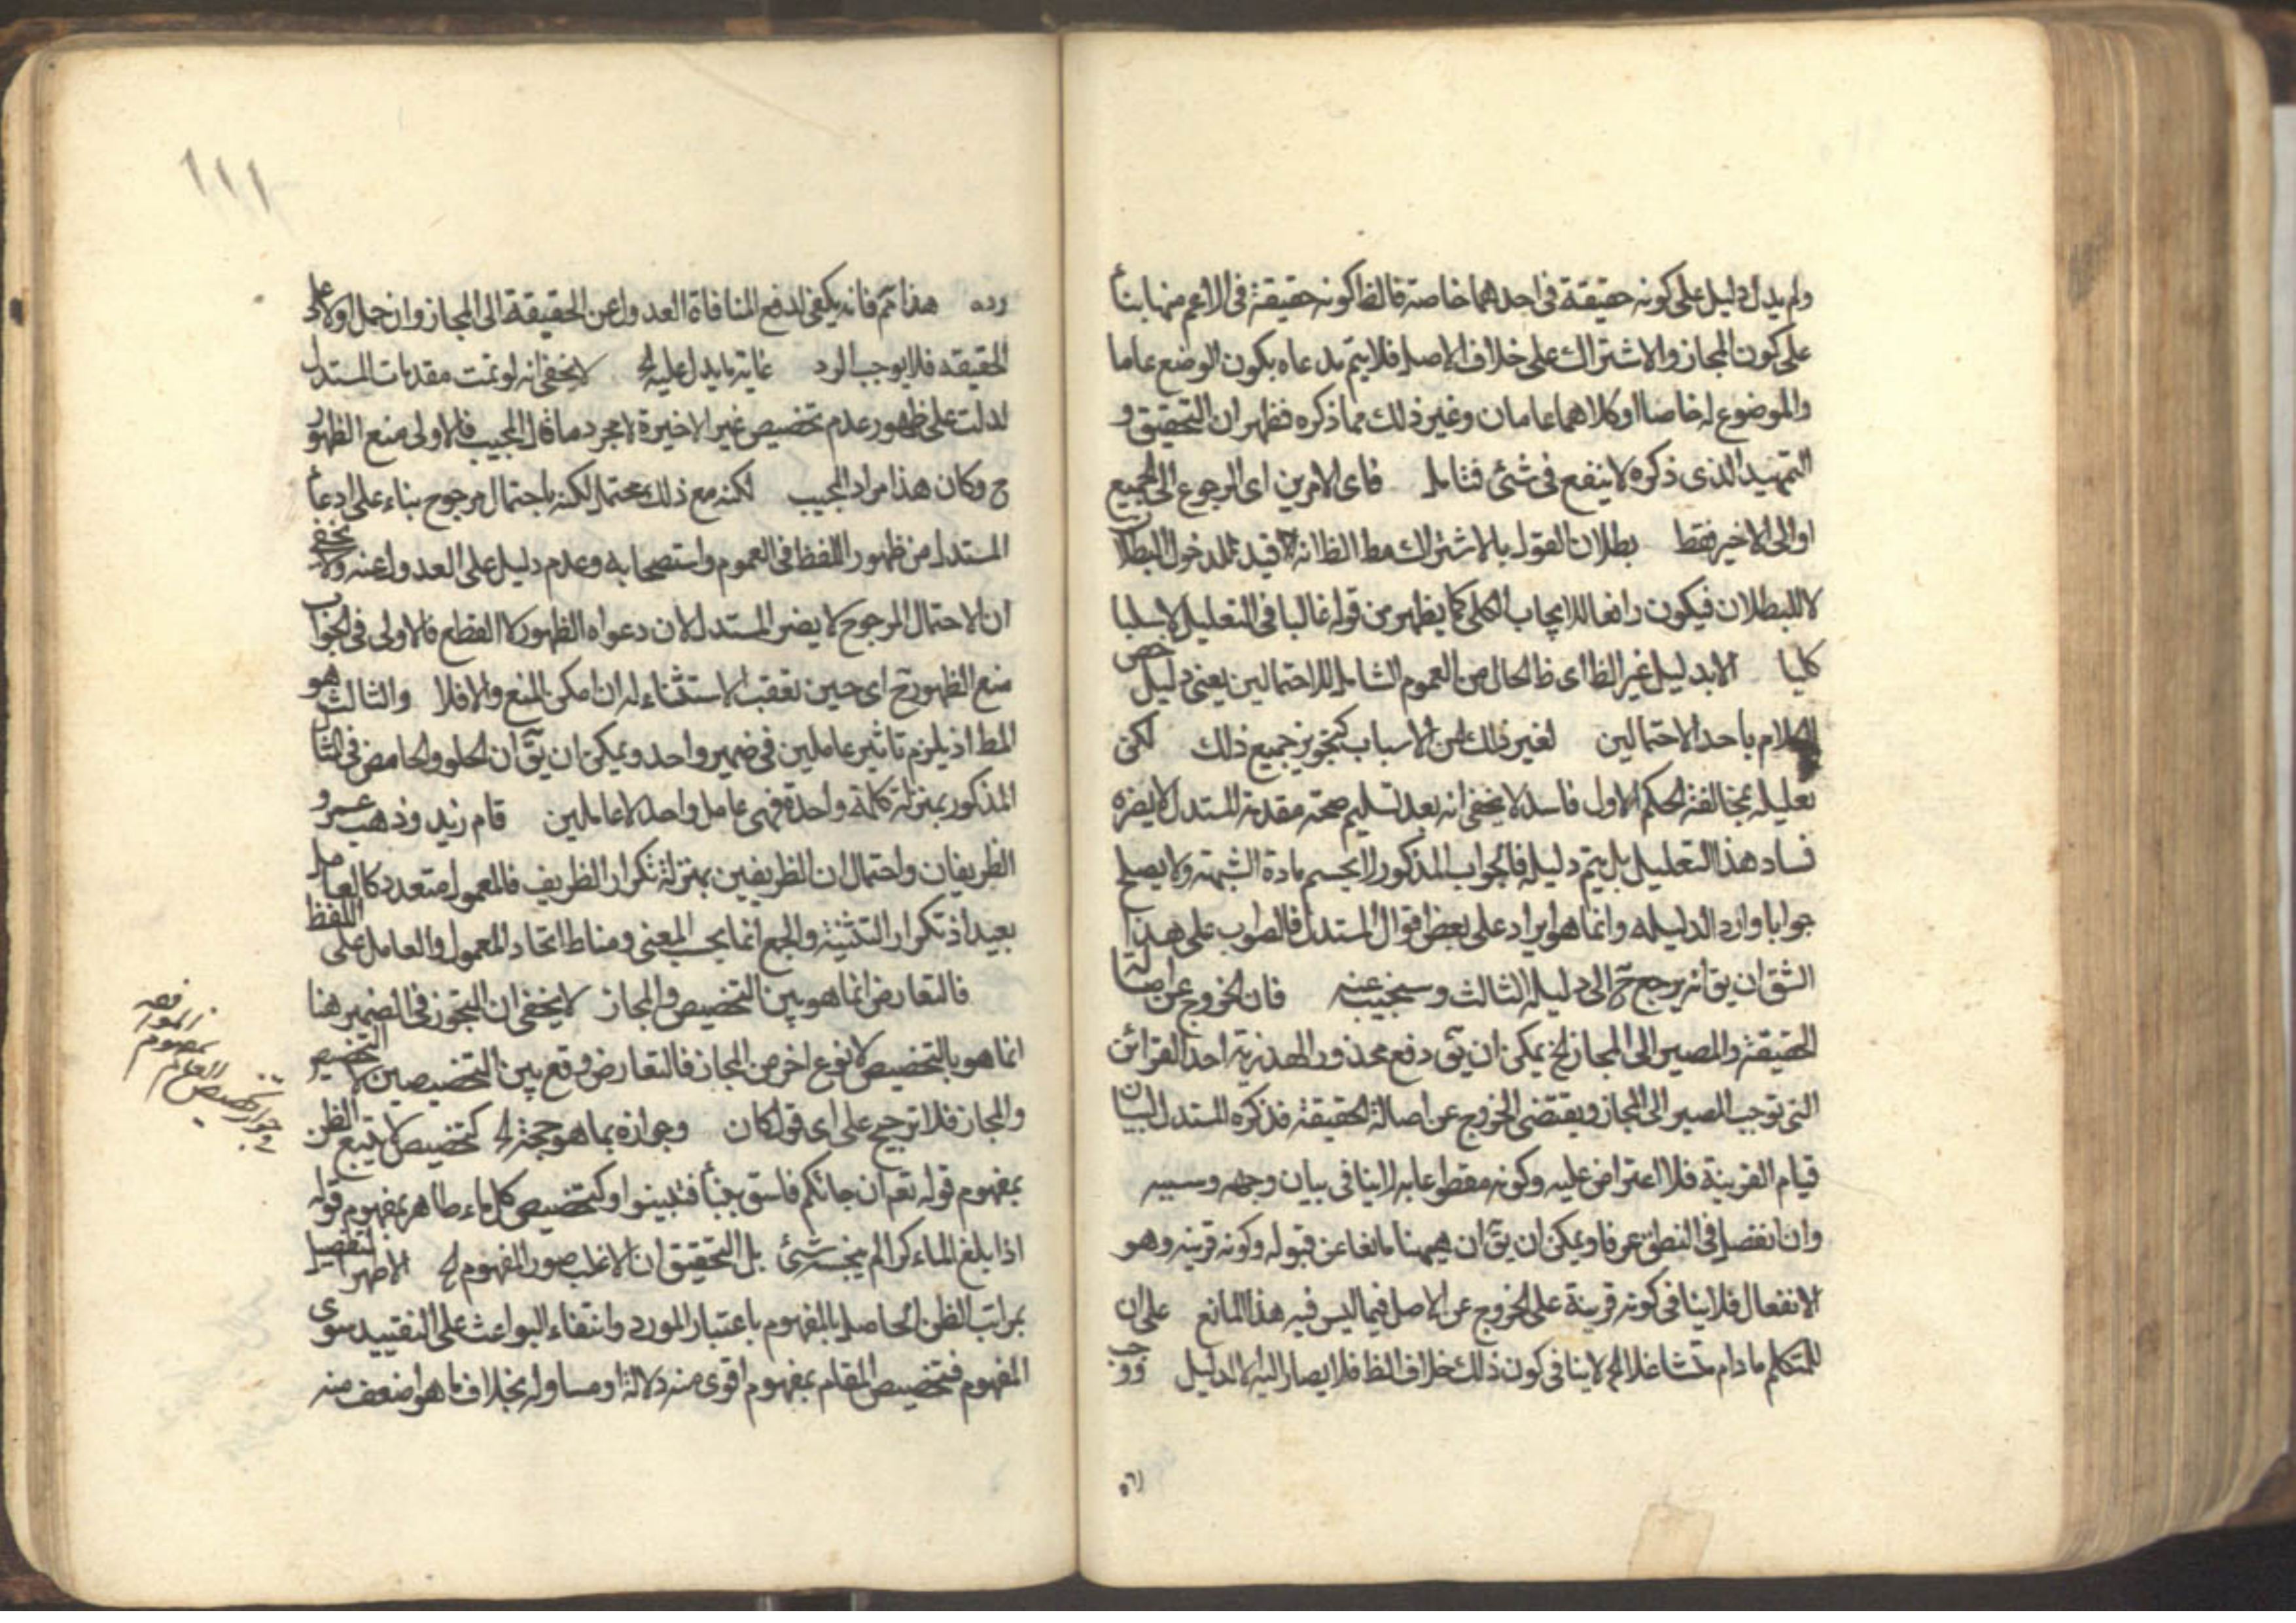 ولم يدل دليل على كونه حقيقة فى احدهما خاصة فالظ كونه حقيقة فى الاعم منهما بناءً
على كون المجاز والاشتراك على خلاف الاصل فلا يتم مدعاه بكون الوضع عاما
والموضوع له خاصا او كلاهما عامان وغير ذلك مما ذكره فظهر ان التحقيق و
التمهيد الذى ذكره لا ينفع فى شئ فتامل فاى الامرين اى الرجوع الى الجميع
او الى الاخير فقط بطلان القول بالاشتراك مط الظ انه قيد للمدخول البطلان
لا للبطلان فيكون رافعا للايجاب الكلى كما يظهر من قوله غالبا فى التعليل لا سلبا
كليا الا بدليل غير الظ اى ظ الحال من العموم الشامل للاحتمالين يعنى دليل خص
الكلام باحد الاحتمالين لغير ذلك من الاسباب كتجويز جميع ذلك لكن
تعليله بمخالفته لحكم الاول فاسد لا يخفى انه بعد تسليم صحة مقدمة المستدل لا يضره
فساد هذا التعليل بل يتم دليله فالجواب المذكور لا يحسم مادة الشبهة ولا يصلح
جوابا واردا لدليله وانما هو ايراد على بعض اقوال المستدل فالصواب على هذا
الشق ان يق انه يرجع ح الى دليله الثالث وسيجيب عنه فان الخروج عن اصالة
الحقيقة والمصير الى المجاز الخ يمكن ان يق دفع محذور الهذرية احد القرائن
التى توجب المصير الى المجاز ويقتضى الخروج عن اصالة الحقيقة فذكره المستدل لبيان
قيام القرينة فلا اعتراض عليه وكونه مقطوعا به لا ينافى بيان وجهه وسببه
وان انفصل فى النطق عرفا ويمكن ان يق ان هيهنا مانعا عن قبوله وكونه قرينة وهو
الانفصال فلا ينافى كونه قرينة على الخروج عن الاصل فيما ليس فيه هذا المانع على ان
للمتكلم ما دام متشاغلا الخ لا ينافى كون ذلك خلاف الظ فلا يصار اليه الا لدليل ووجب
رده
١١١
رده هذا تم فانه يكفى لدفع المنافاة العدول عن الحقيقة الى المجاز وان حمل اولا على
الحقيقة فلا يوجب الرد غاية ما يدل عليه الخ لا يخفى انه لو تمت مقدمات المستدل
لدلت على ظهور عدم تخصيص غير الاخيرة لا مجرد ما قال المجيب فالاولى منع الظهور
ح وكان هذا مراد المجيب لكنه مع ذلك محتمل لكنه باحتمال مرجوح بناء على ادعاء
المستدل من ظهور اللفظ فى العموم واستصحابه وعدم دليل على العدول عنه ولا يخفى
ان الاحتمال المرجوح لا يضر المستدل لان دعواه الظهور لا القطع فالاولى فى الجواب
منع الظهور ح اى حين تعقب الاستثناء له ان امكن المنع والا فلا والثالث هو
المط اذ يلزم تاثير عاملين فى ضمير واحد ويمكن ان يق ان الحلو والحامض فى المثال
المذكور بمنزلة كلمة واحدة فهى عامل واحد لا عاملين قام زيد وذهب عمرو
الظريفان واحتمال ان الظريفين بمنزلة تكرار الظريف فالمعمول متعدد كالعامل
بعيد اذ تكرار التثنية والجمع انما بحسب المعنى ومناط اتحاد المعمول والعامل على اللفظ
فالتعارض انما هو بين التخصيص والمجاز لا يخفى ان التجوز فى الضمير هنا
انما هو بالتخصيص لا نوع اخر من المجاز فالتعارض وقع بين التخصيصين لا التخصيص
والمجاز فلا ترجيح على اى قول كان وجوازه بما هو حجة الخ كتخصيص لا يتبع الظن
بمفهوم قوله تعم ان جائكم فاسق بنبأ فتبينوا وكتخصيص كل ماء طاهر بمفهوم قوله
اذا بلغ الماء كرا لم ينجسه شئ بل التحقيق ان الاغلب صور المفهوم الخ الاظهر لتفصيل
بمراتب الظن الحاصل بالمفهوم باعتبار المورد وانتفاء البواعث على التقييد سوى
المفهوم فتخصيص المقام بمفهوم اقوى منه دلالة او مساو له بخلاف ما هو اضعف منه
فى جواز تخصيص العام
بمفهوم
الموافقة